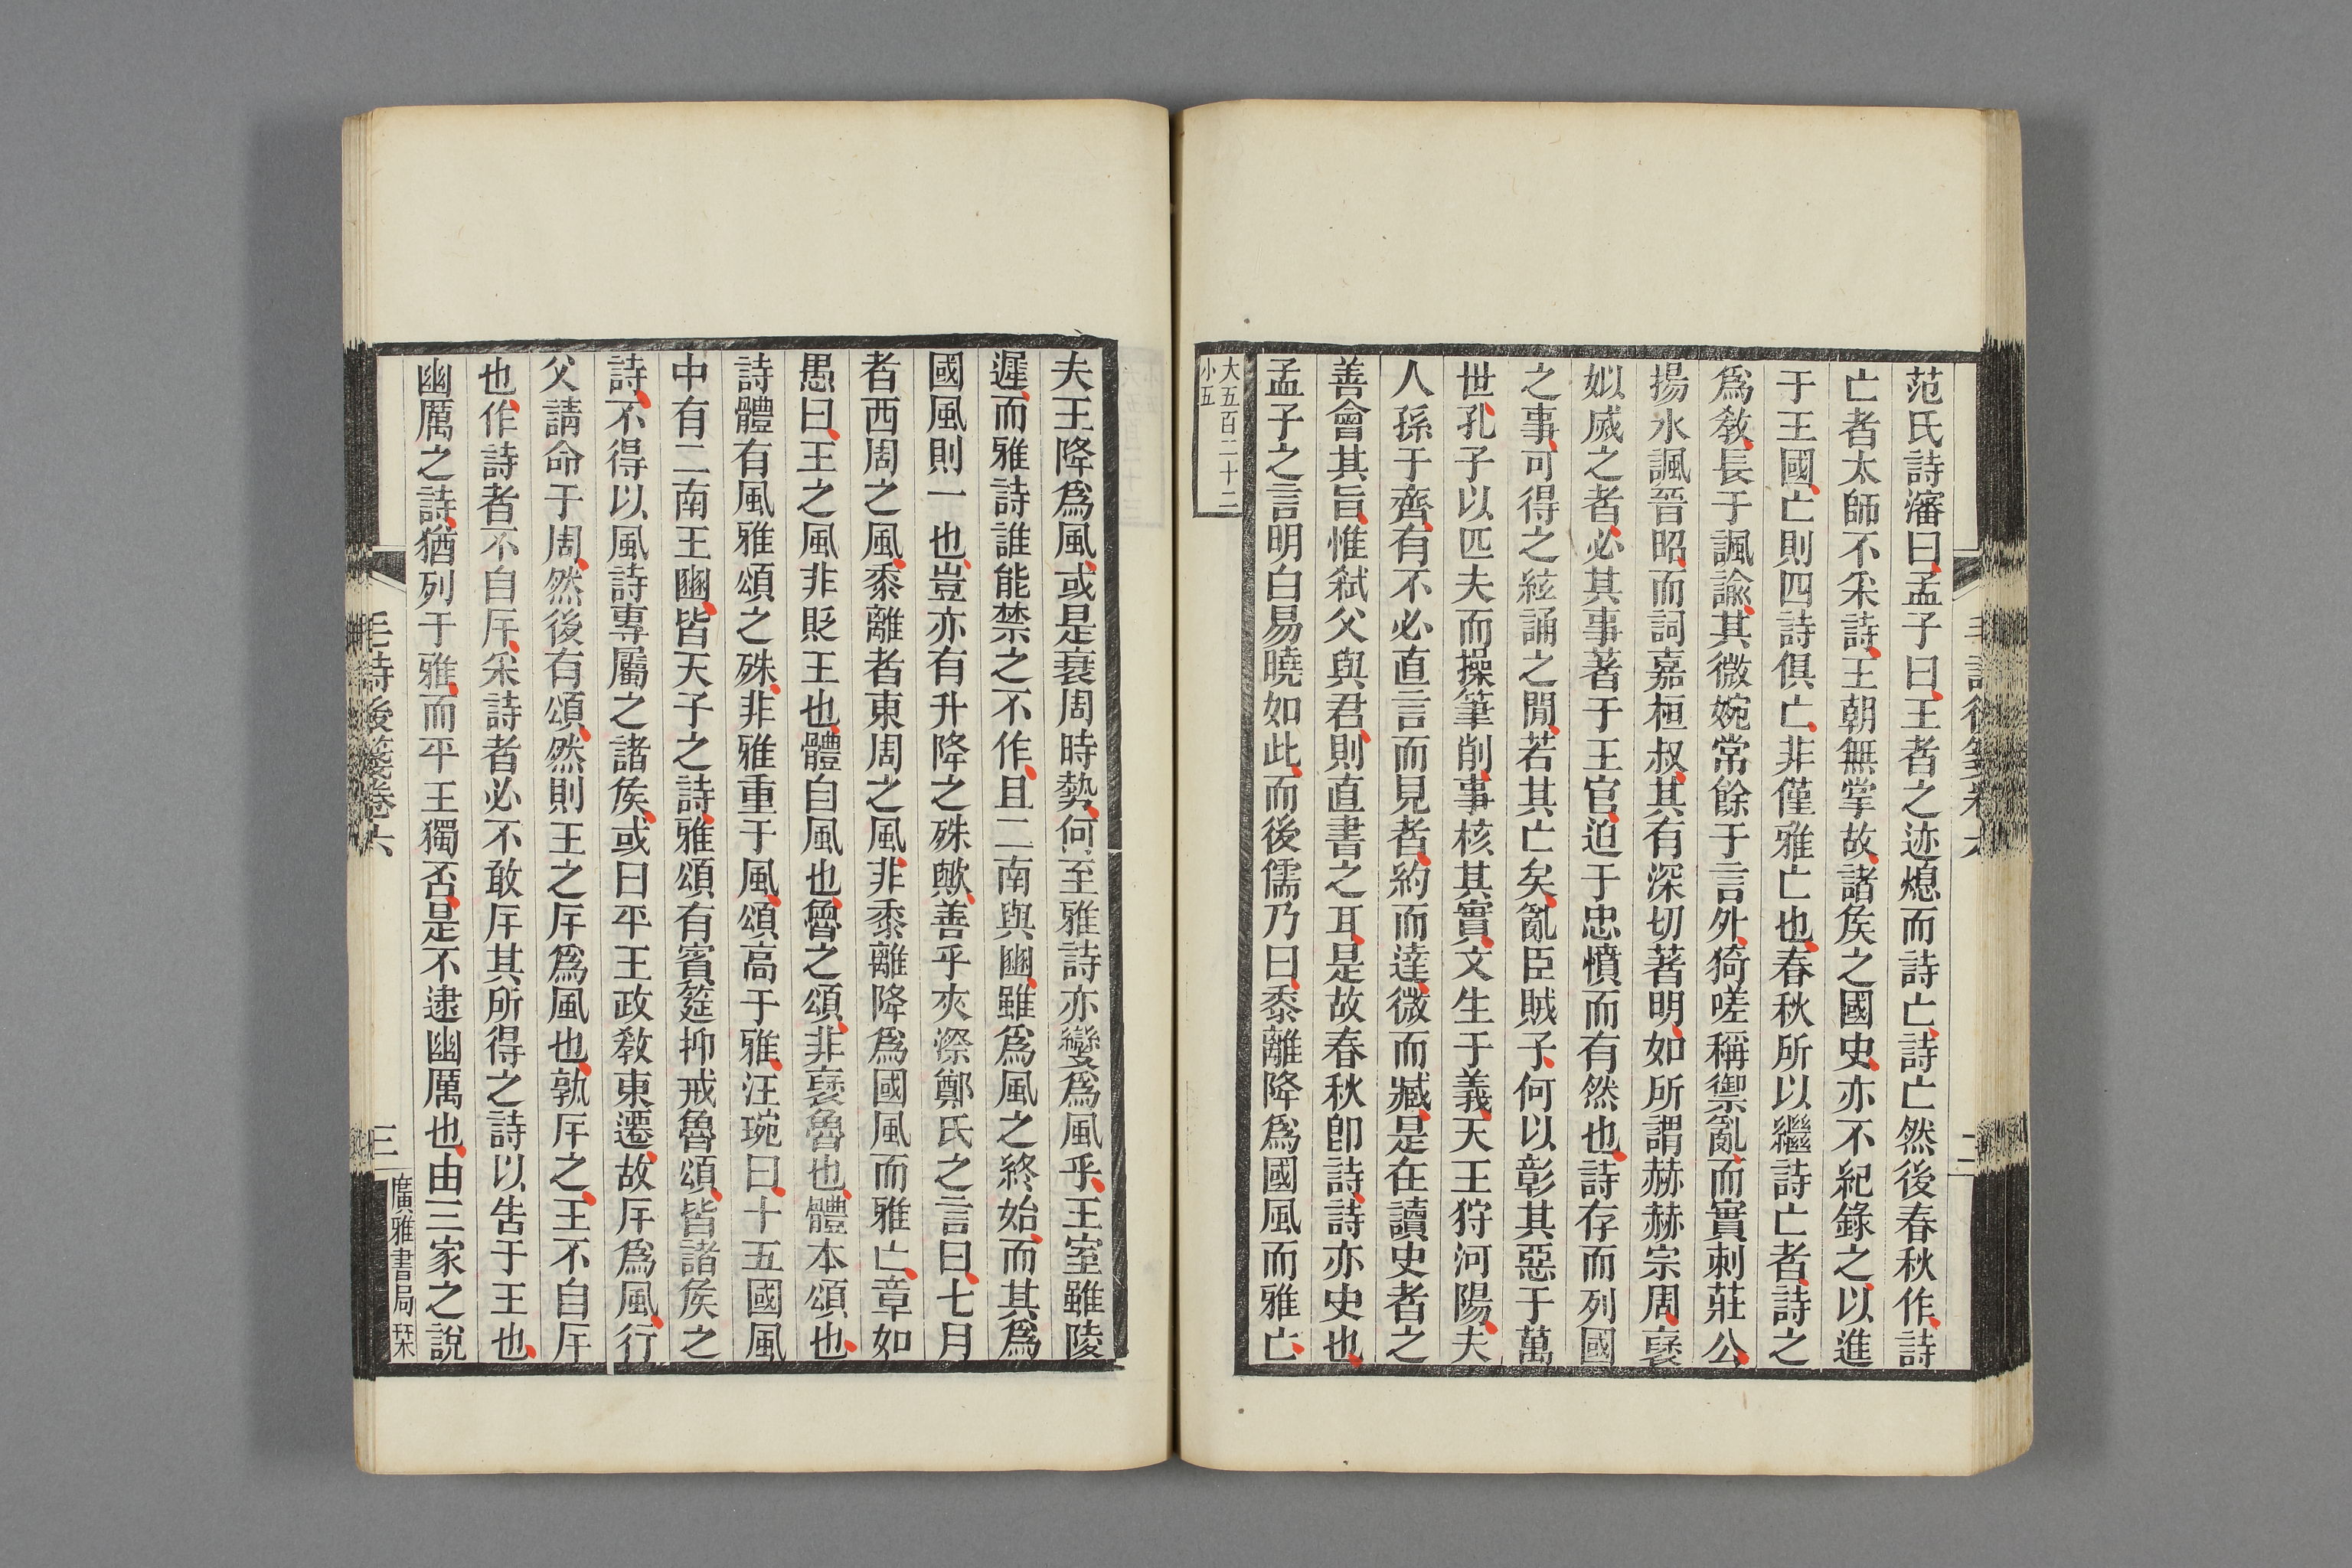 范氏詩瀋曰孟子曰王者之迹熄而詩亡詩亡然後春秋作詩
亡者太師不采詩王朝無掌故諸矦之國史亦不紀錄之以進
于王國亡則四詩俱亡亡非僅雅亡也春秋所以繼詩亡者詩之
爲敎長于諷諭其微婉常餘于言外猗嗟稱禦亂而實刺莊公
揚水諷晉昭而詞嘉桓叔其有深切著明如所謂赫赫宗周襃
姒烕之者必其事著于王官迫于忠憤而有然也詩存而列國
之事可得之絃誦之閒若其亡矣亂臣賊子何以彰其惡于萬
世孔子以匹夫而操筆削事核其實文生于義天王狩河陽夫
人孫于齊有不必直言而見者約而達微而臧是在讀史者之
善會其旨惟弒父與君則直書之耳是故春秋卽詩詩亦史也
孟子之言明白易曉如此而後儒乃曰黍離降爲國風而雅亡
大五百二十二
小五
夫王降爲風或是衰周時勢何至雅詩亦變爲風乎王室雖陵
遲而雅詩誰能禁之不作且二南與豳雖爲風之終始而其爲
國風則一也豈亦有升降之殊歟善乎夾漈鄭氏之言曰七月
者西周之風黍離者東周之風非黍離降爲國風而雅亡章如
愚曰王之風非貶王也體自風也魯之頌非襃魯也體本頌也
詩體有風雅頌之殊非雅重于風頌高于雅汪琬曰十五國風
中有二南王豳皆天子之詩雅頌有賓筵抑戒魯頌皆諸矦之
詩不得以風詩專屬之諸矦或曰平王政敎東遷故斥爲風行
父請命于周然後有頌然則王之斥爲風也孰斥之王不自斥
也作詩者不自斥采詩者必不敢斥其所得之詩以吿于王也
幽厲之詩猶列于雅而平王獨否是不逮幽厲也由三家之說
毛詩後箋卷六
三
廣雅書局栞